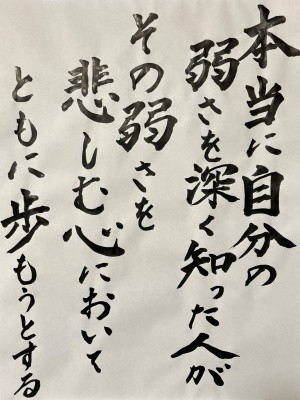 本当に自分の
弱さを深く知った人が
その弱さを
悲しむ心において
ともに歩もうとする